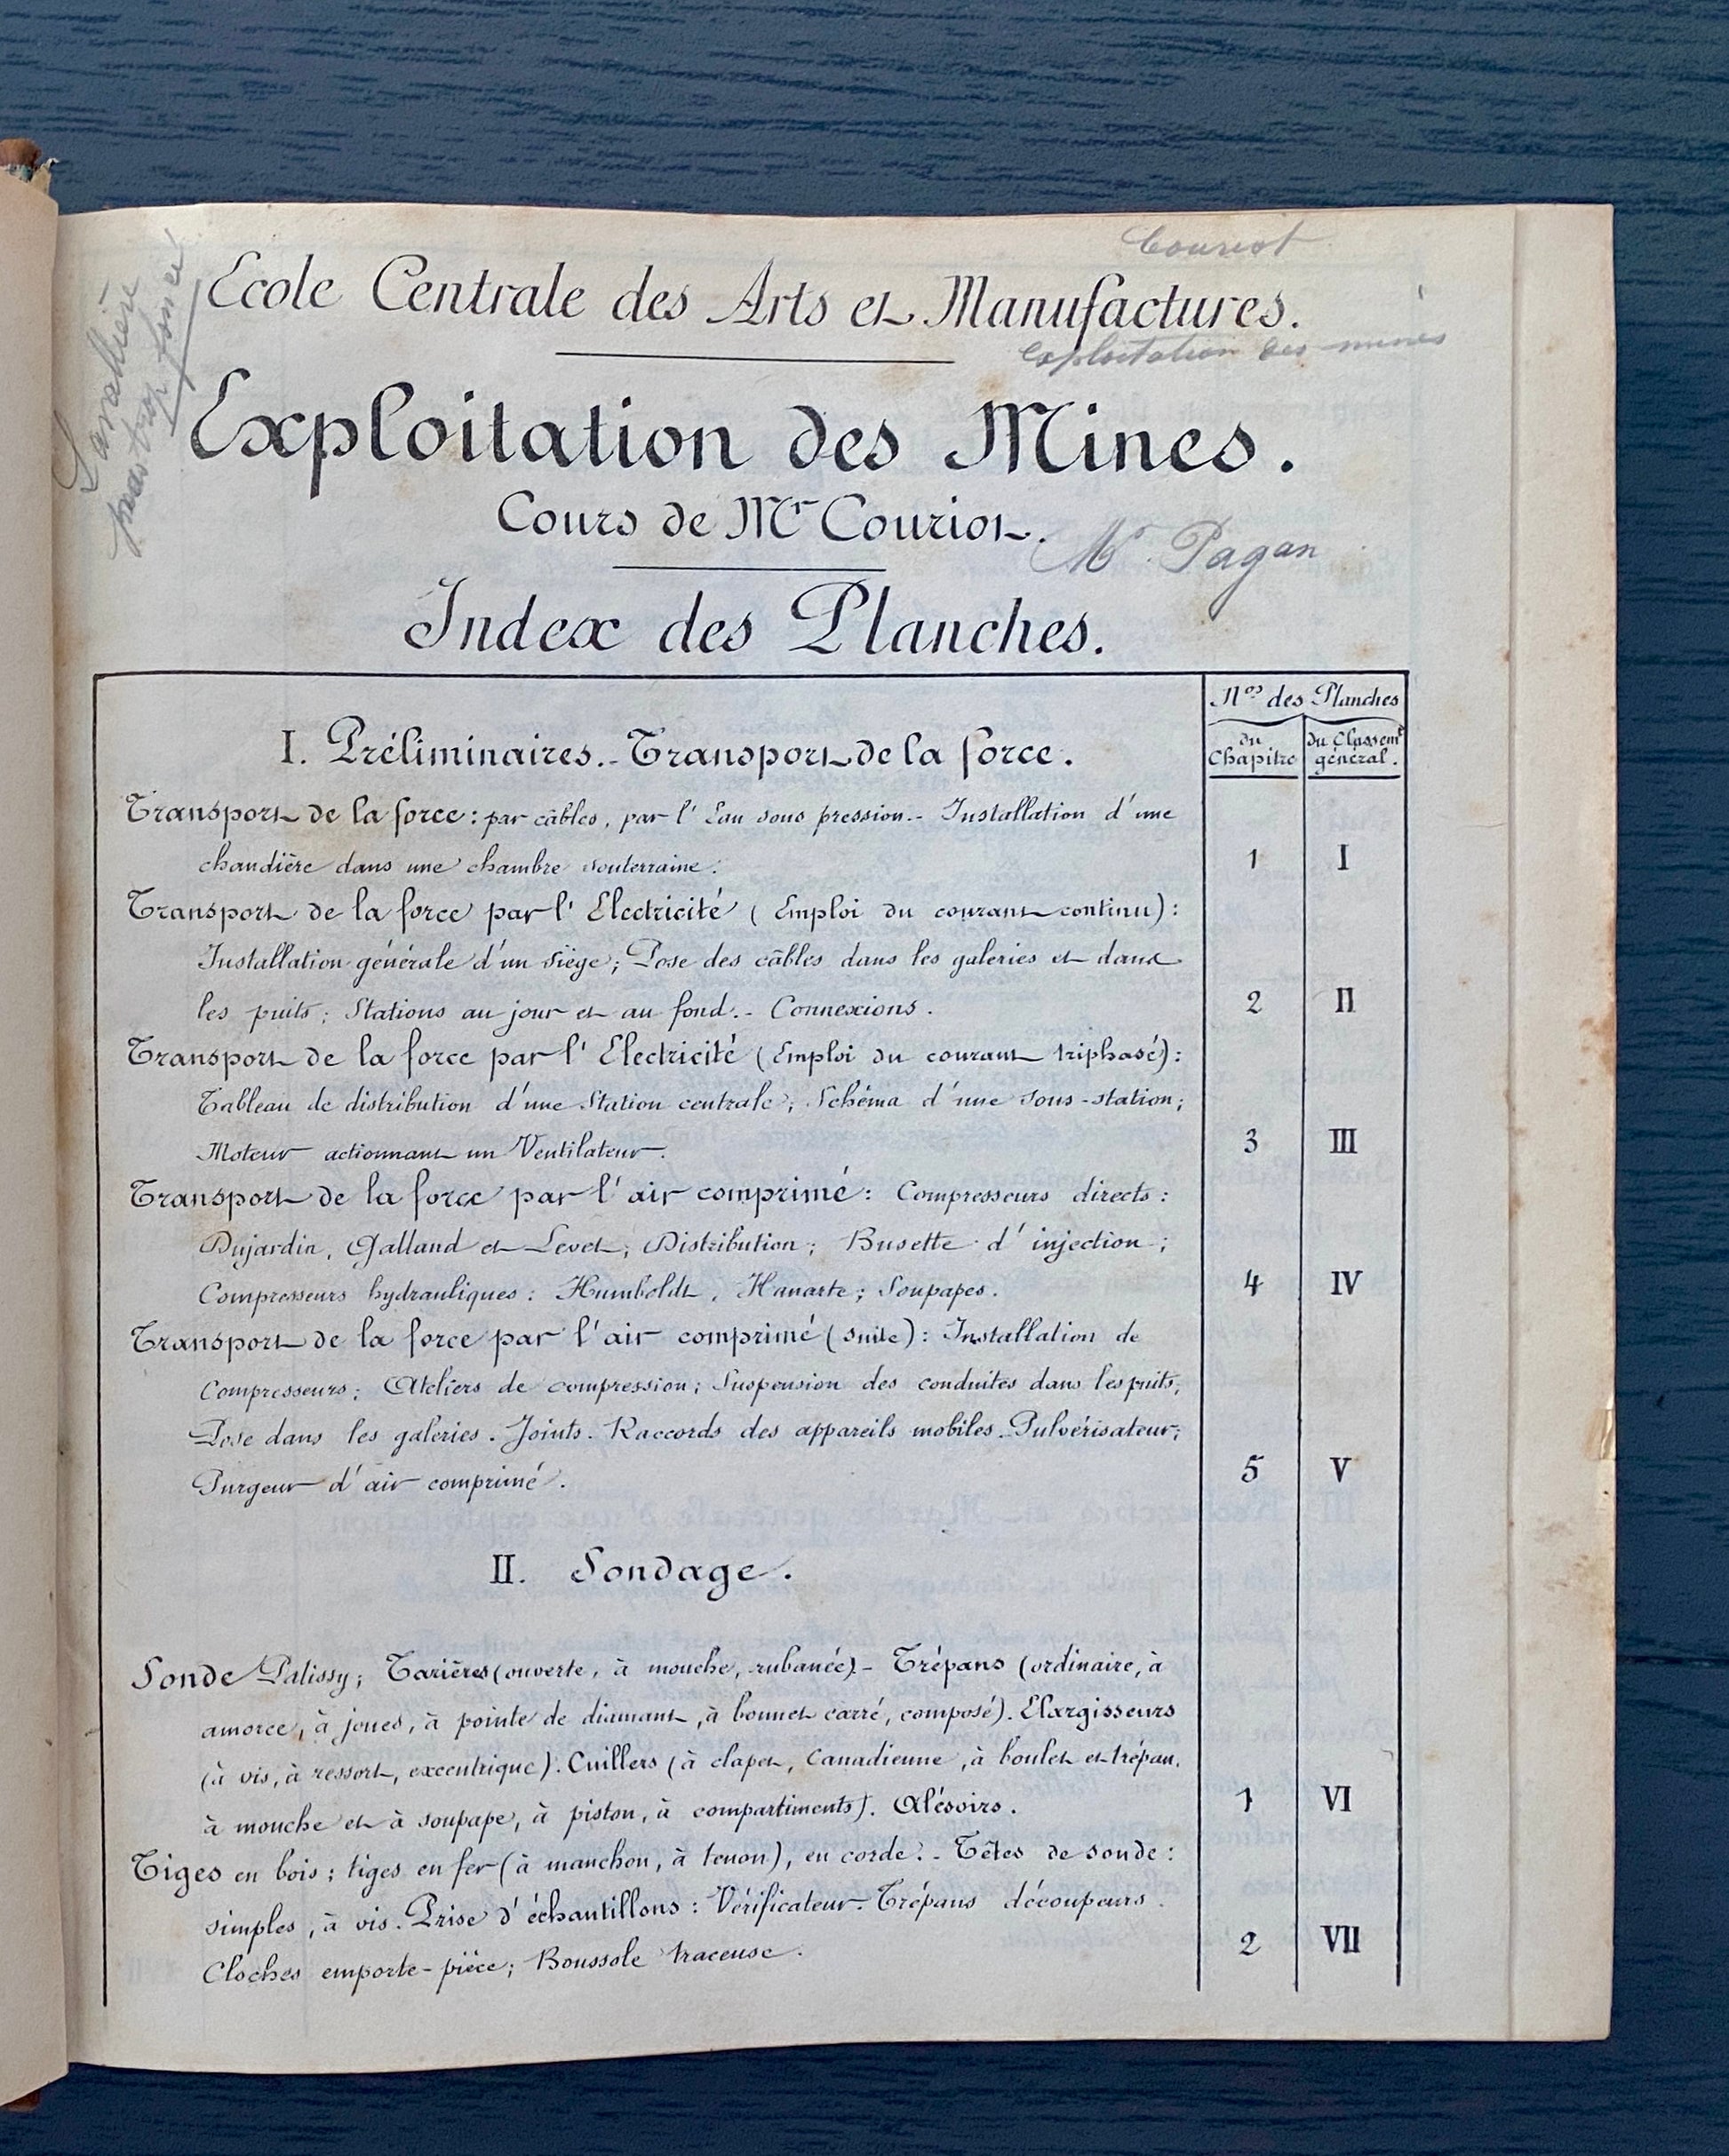 Couriot
Ecole Centrale des Arts et Manufactures.
Exploitation des mines
Lavallière
pas trop foncé
Exploitation des Mines.
Cours de Mr Couriot.
Mr Pagan
Index des Planches.
Nos des Planches
du Chapitre
du Classemt général.
I. Préliminaires.- Transport de la force.
Transport de la force : par câbles, par l'Eau sous pression.- Installation d'une
chaudière dans une chambre souterraine.
1 I
Transport de la force par l'Electricité (Emploi du courant continu) :
Installation générale d'un siège ; Pose des câbles dans les galeries et dans
les puits ; Stations au jour et au fond.- Connexions.
2 II
Transport de la force par l'Electricité (Emploi du courant triphasé) :
Tableau de distribution d'une Station centrale ; Schéma d'une sous-station ;
Moteur actionnant un Ventilateur.
3 III
Transport de la force par l'air comprimé : Compresseurs directs :
Dujardin, Galland et Levet ; Distribution ; Busette d'injection ;
Compresseurs hydrauliques : Humboldt, Hanarte ; Soupapes.
4 IV
Transport de la force par l'air comprimé (suite) : Installation de
Compresseurs ; Ateliers de compression ; Suspension des conduites dans les puits ;
Pose dans les galeries. Joints. Raccords des appareils mobiles. Pulvérisateur ;
Purgeur d'air comprimé.
5 V
II. Sondage.
Sonde Palissy ; Tarières (ouverte, à mouche, rubanée) - Trépans (ordinaire, à
amorce, à joues, à pointe de diamant, à bonnet carré, composé). Elargisseurs
(à vis, à ressort, excentrique). Cuillers (à clapet, Canadienne, à boulet et trépan,
à mouche et à soupape, à piston, à compartiments). Alésoirs.
1 VI
Tiges en bois ; tiges en fer (à manchon, à tenon), en corde.- Têtes de sonde :
simples, à vis. Prise d'échantillons : Vérificateur. Trépans découpeurs.
Cloches emporte-pièce ; Boussole traceuse.
2 VII